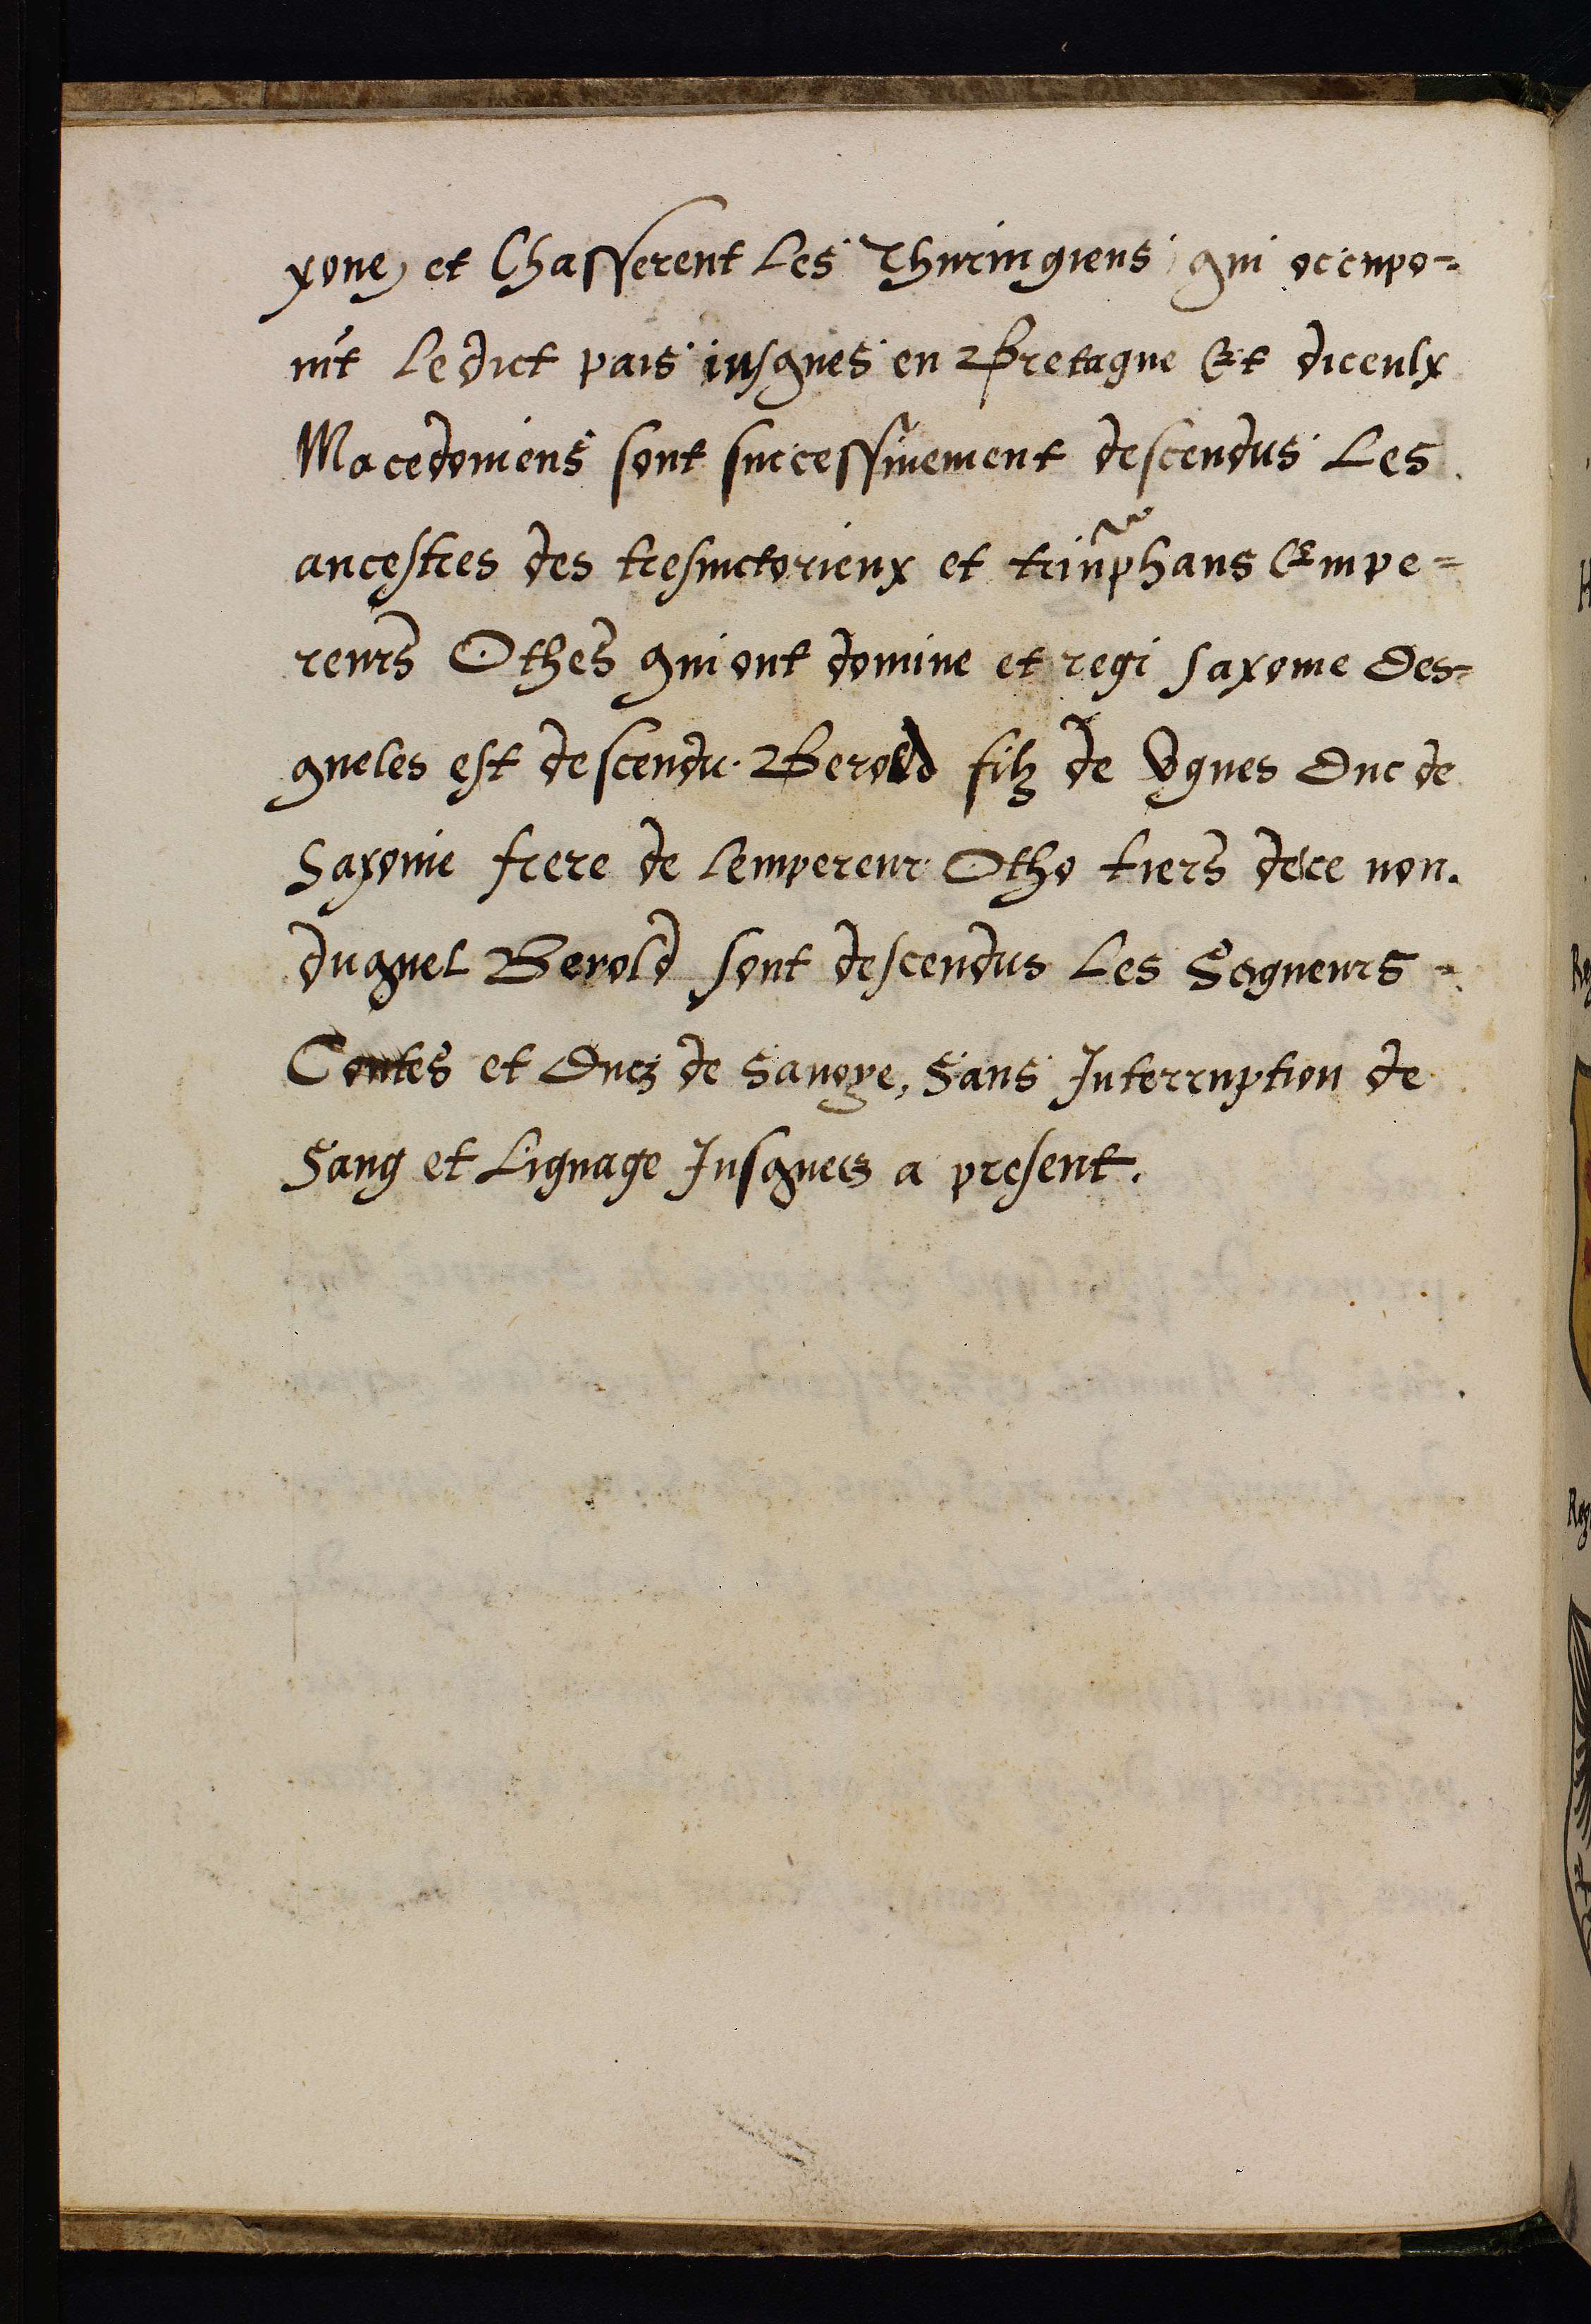 xone, et Chasserent Les Thuringiens qui occupo=
nit Ledict pais iusques en Bretagne Et diceulx
Macedoniens sont successiuement descendus Les
ancestres des tresuictorieux et triũphans Empe=
reurs Othes qui ont domine et regi saxonie Des=
queles est descendu Berold filz de Vgues Duc de
Saxonie frere de lempereur Otho tiers de ce non.
duquel Berold sont descendus Les Segneurs
Contes et Ducz de Sauoye, Sans Interruption de
Sang et Lignage Iusquez a present.